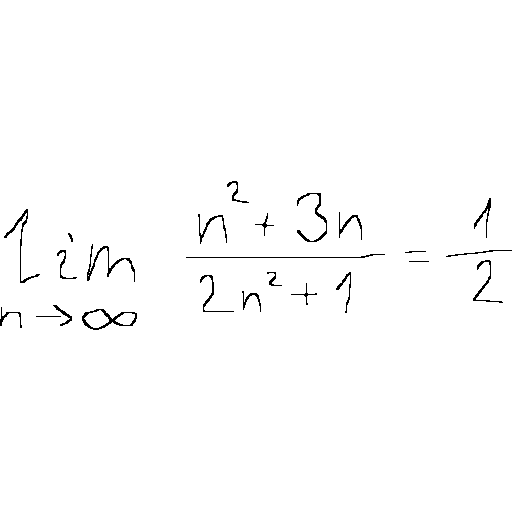 lim n→∞ (n² + 3n)/(2n² + 1) = 1/2